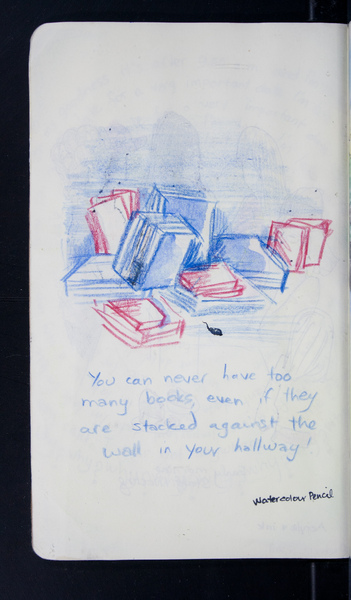 You can never have too
many books, even if they
are stacked against the
wall in your hallway!
Watercolour Pencil